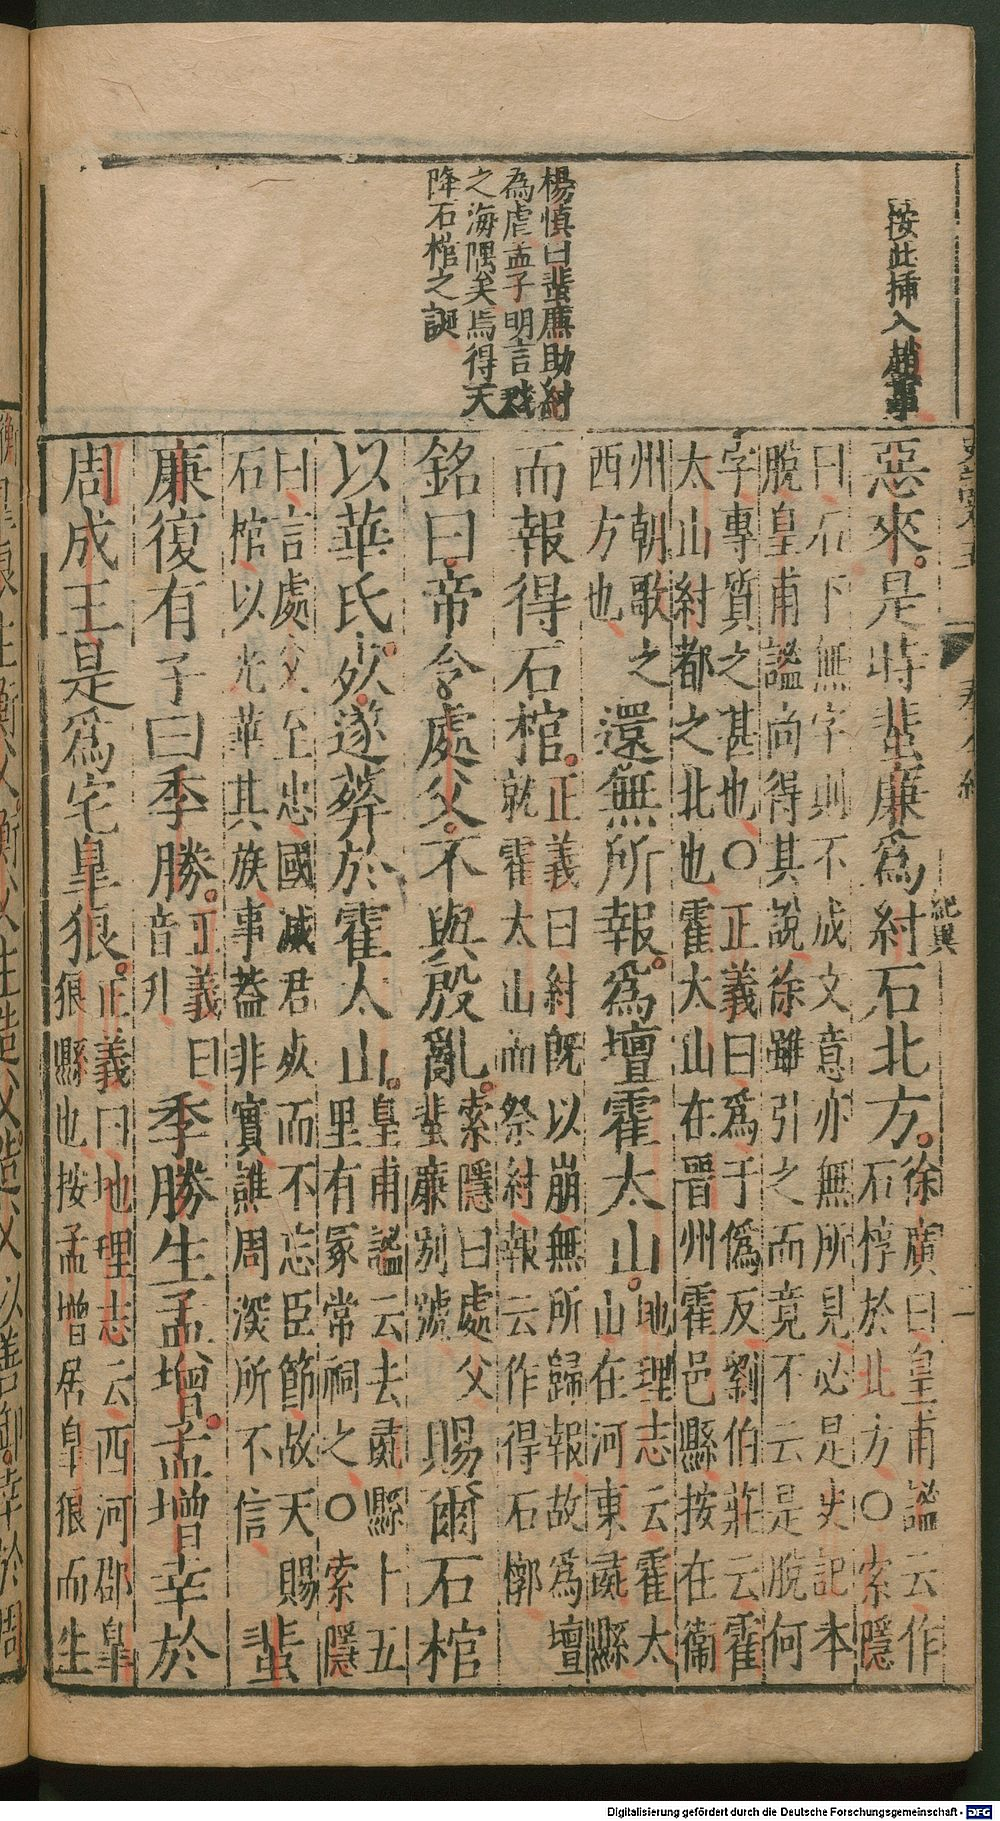 按此揷入趙事
楊慎曰蜚廉助紂
為虐孟子明言戮
之海隅矣焉得天
降石棺之誕
惡來。是時蜚廉爲紂石北方。徐廣曰皇甫謐云作
石椁於北方○索隱
曰石下無字則不成文意亦無所見必是史記本
脫皇甫謐尚得其說徐雖引之而竟不云是脫何
字專質之甚也○正義曰爲于僞反劉伯莊云霍
太山紂都之北也霍太山在晋州霍邑縣按在衛
州朝歌之
西方也
還無所報。爲壇霍太山。地理志云霍太
山在河東彘縣
而報得石棺。正義曰紂旣以崩無所歸報故爲壇
就霍太山而祭紂報云作得石槨
銘曰。帝令處父。不與殷亂。索隱曰處父
蜚廉別號
賜爾石棺
以華氏。死。遂葬於霍太山。皇甫謐云去彘縣十五
里有冢常祠之○索隱
曰言處父至忠國滅君死而不忘臣節故天賜
石棺以光華其族事蓋非實譙周深所不信
蜚
廉復有子曰季勝。正義曰
音升
季勝生孟增。孟增幸於
周成王是爲宅皋狼。正義曰地理志云西河郡皋
狼縣也按孟增居皋狼而生
Digitalisierung gefördert durch die Deutsche Forschungsgemeinschaft - DFG